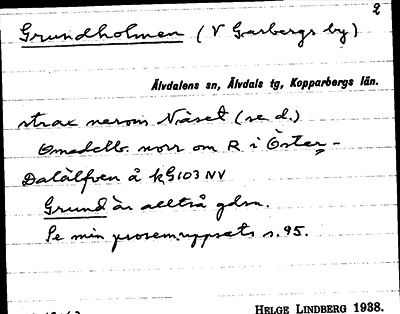 2
Grundholmen (V Garbergs by)
Älvdalens sn, Älvdals tg, Kopparbergs län.
strax nerom Näset (se d.)
Omedelb. norr om R i Öster-
Dalälfven å kG103 NV
Grund är alltså gdsn.
Se min prosemuppsats s. 95.
HELGE LINDBERG 1938.